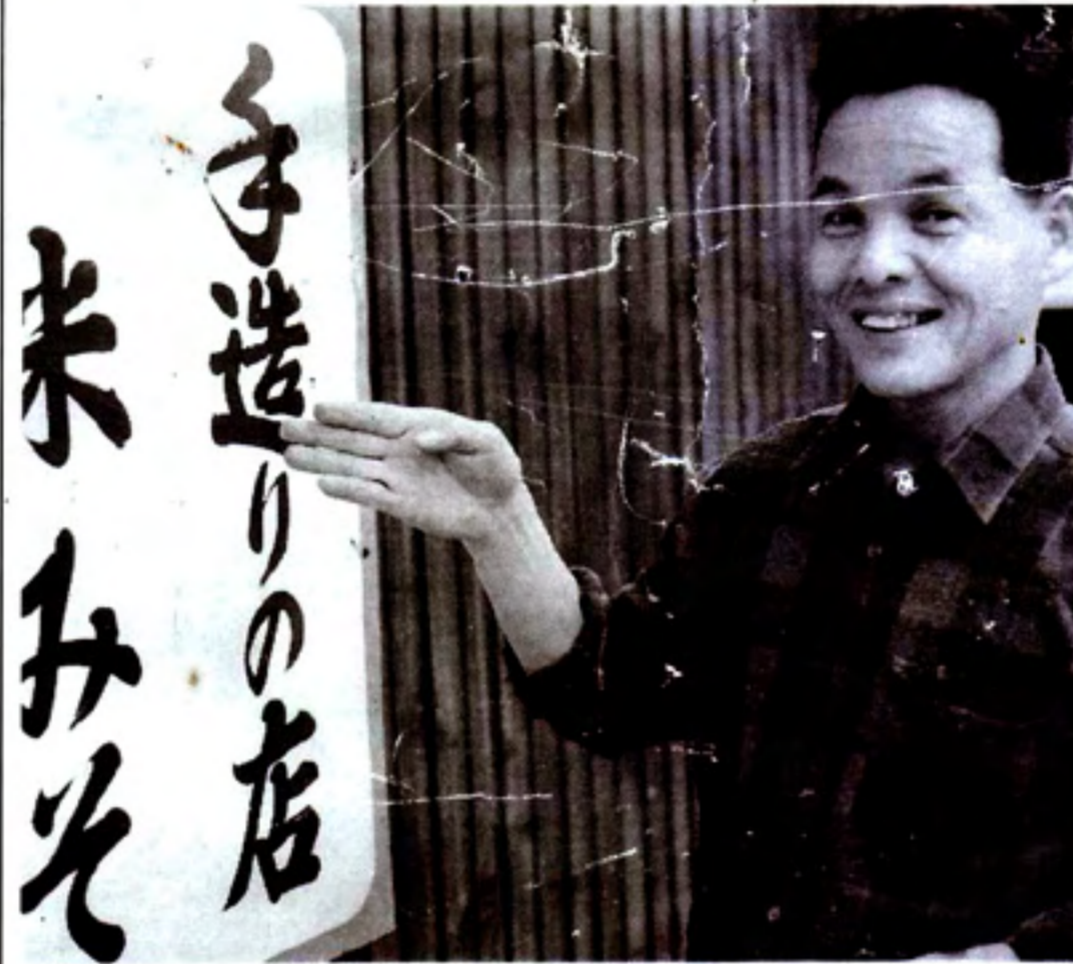 手造りの店
米みそ